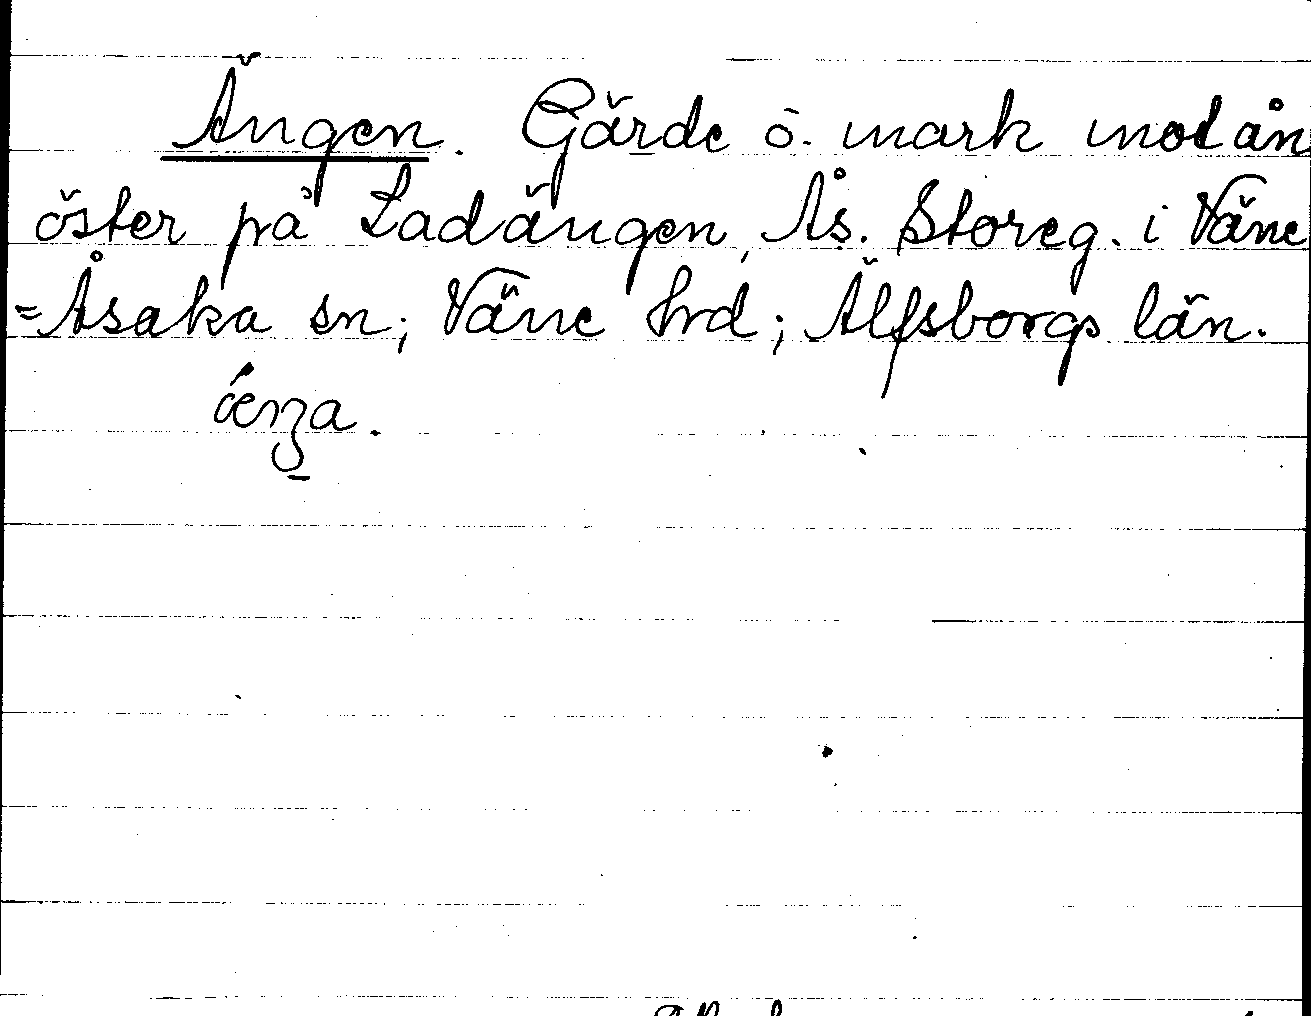 Ängen. Gärde o. mark mot ån
öster på Ladängen, Ås. Storeg. i Väne
=Åsaka sn; Väne hrd; Älfsborgs län.